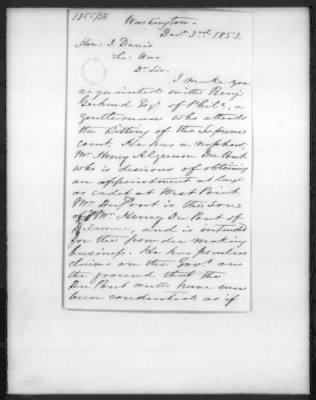 1855/56
Washington -
Dec 3rd 1853.
Hon: J. Davis
Sec: War.
Dr Sir.
I make you
acquainted with Benj.
Gerhard Esq. of Phila, a
gentleman who attends
the sitting of the Supreme
court. He has a nephew,
Mr Henry Algernon Du Pont
who is desirous of obtaining
an appointment at large
as cadet at West Point
Mr Du Pont is the son
of Mr Henry Du Pont of
Delaware, and is intended
for the powder making
business. He has peculiar
claims on the Govt on
the ground that the
Du Pont mills have ever
been conducted as if